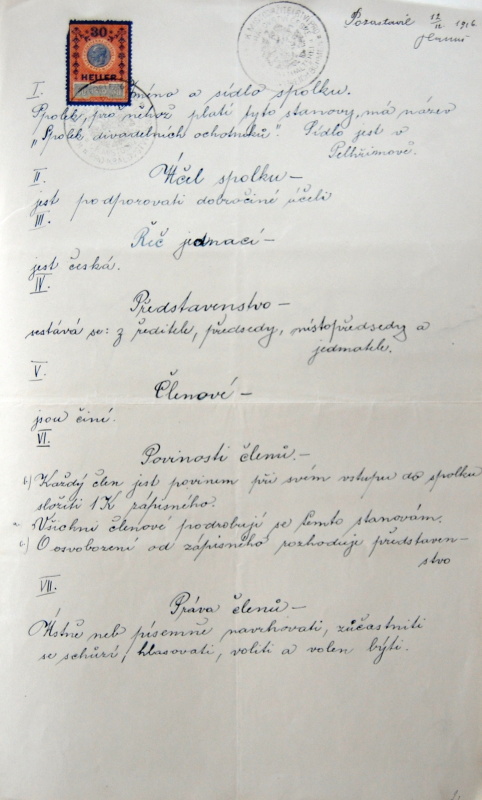 12/11 1916
30
HELLER
I.
Jméno a sídlo spolku.
Spolek, pro něhož platí tyto stanovy, má název
„Spolek divadelních ochotníků". Sídlo jest v
Pelhřimově.
II.
Účel spolku –
jest podporovati dobročiné účeli
III.
Řeč jednací –
jest česká.
IV.
Představenstvo –
sestává se: z ředitele, předsedy, místopředsedy a
jednatele.
V.
Členové –
jsou činí.
VI.
Povinosti členů. –
b) Každý člen jest povinem při svém vstupu do spolku
složiti 1 K zápisného.
a. Všichni členové podrobují se temto stanovám.
c) O osvobození od zápisného rozhoduje představen-
stvo
VII.
Práva členů –
Ústně neb písemně navrhovati, zúčastniti
se schůzí, hlasovati, voliti a volen býti.